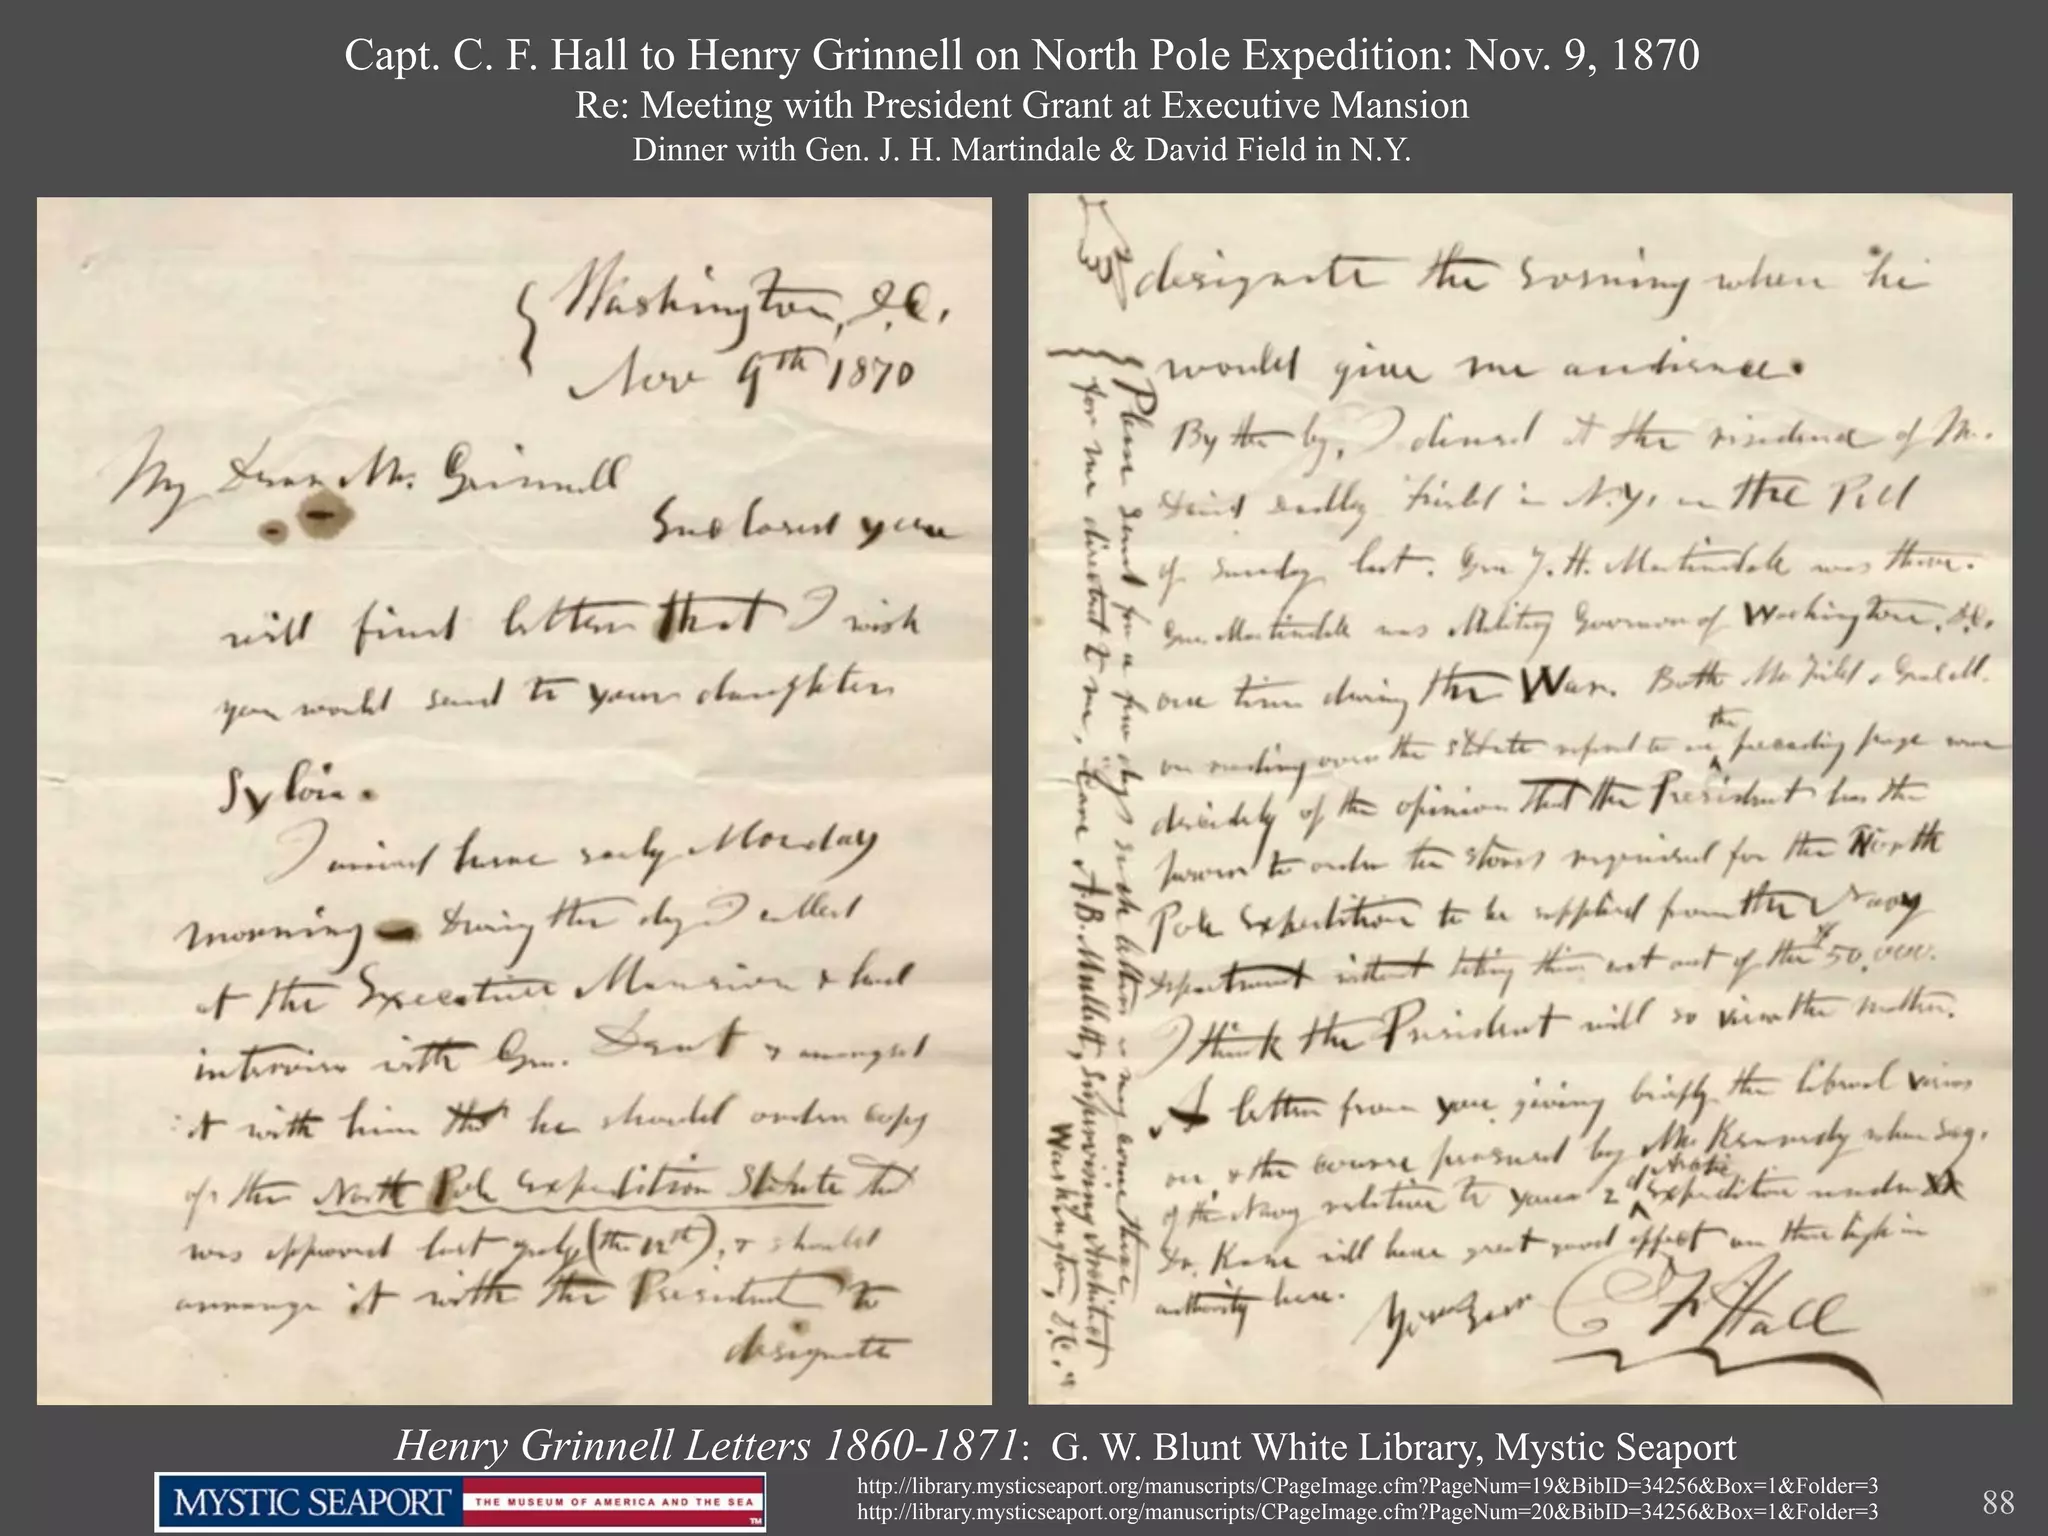 Capt. C. F. Hall to Henry Grinnell on North Pole Expedition: Nov. 9, 1870
Re: Meeting with President Grant at Executive Mansion
Dinner with Gen. J. H. Martindale & David Field in N.Y.
Washington, D.C.
Nov 9th 1870
My Dear Mr. Grinnell
Enclosed you
will find letter that I wish
you would send to your daughter
Sylvia.
I arrived here early Monday
morning During the day I called
at the Executive Mansion & had
interview with Gen. Dent & arranged
it with him that he should order copy
of the North Pole Expedition Statute that
was approved last July (the 12th), & should
arrange it with the President to
designate
designate the morning when he
would give me audience.
By the by, I dined at the residence of Mr.
David Dudley Field in N.Y. on the
of Sunday last. Gen J. H. Martindale was there.
Gen. Martindale was Military Governor of Washington, D.C.
one time during the War. Both Mr Field & Genl M.
on reading over the Statute referred to on the preceding page were
decidedly of the opinion that the President has the
power to order the stores required for the North
Pole Expedition to be supplied from the Navy
Department without taking them out of the $50,000.
I think the President will so view the matter.
A letter from you giving briefly the liberal views
of, & the course pursued by Mr. Kennedy when Secy.
of the Navy relative to your 2d Arctic Expedition under
Dr. Kane will have great good effect on those high in
authority here. Yours Ever C F Hall
Please send for a few days such letters as may come there
for me directed to me, "Care A. B. Mullett, Supervising Architect
Washington, D.C."
Henry Grinnell Letters 1860-1871: G. W. Blunt White Library, Mystic Seaport
MYSTIC SEAPORT THE MUSEUM OF AMERICA AND THE SEA TM
http://library.mysticseaport.org/manuscripts/CPageImage.cfm?PageNum=19&BibID=34256&Box=1&Folder=3
http://library.mysticseaport.org/manuscripts/CPageImage.cfm?PageNum=20&BibID=34256&Box=1&Folder=3
88